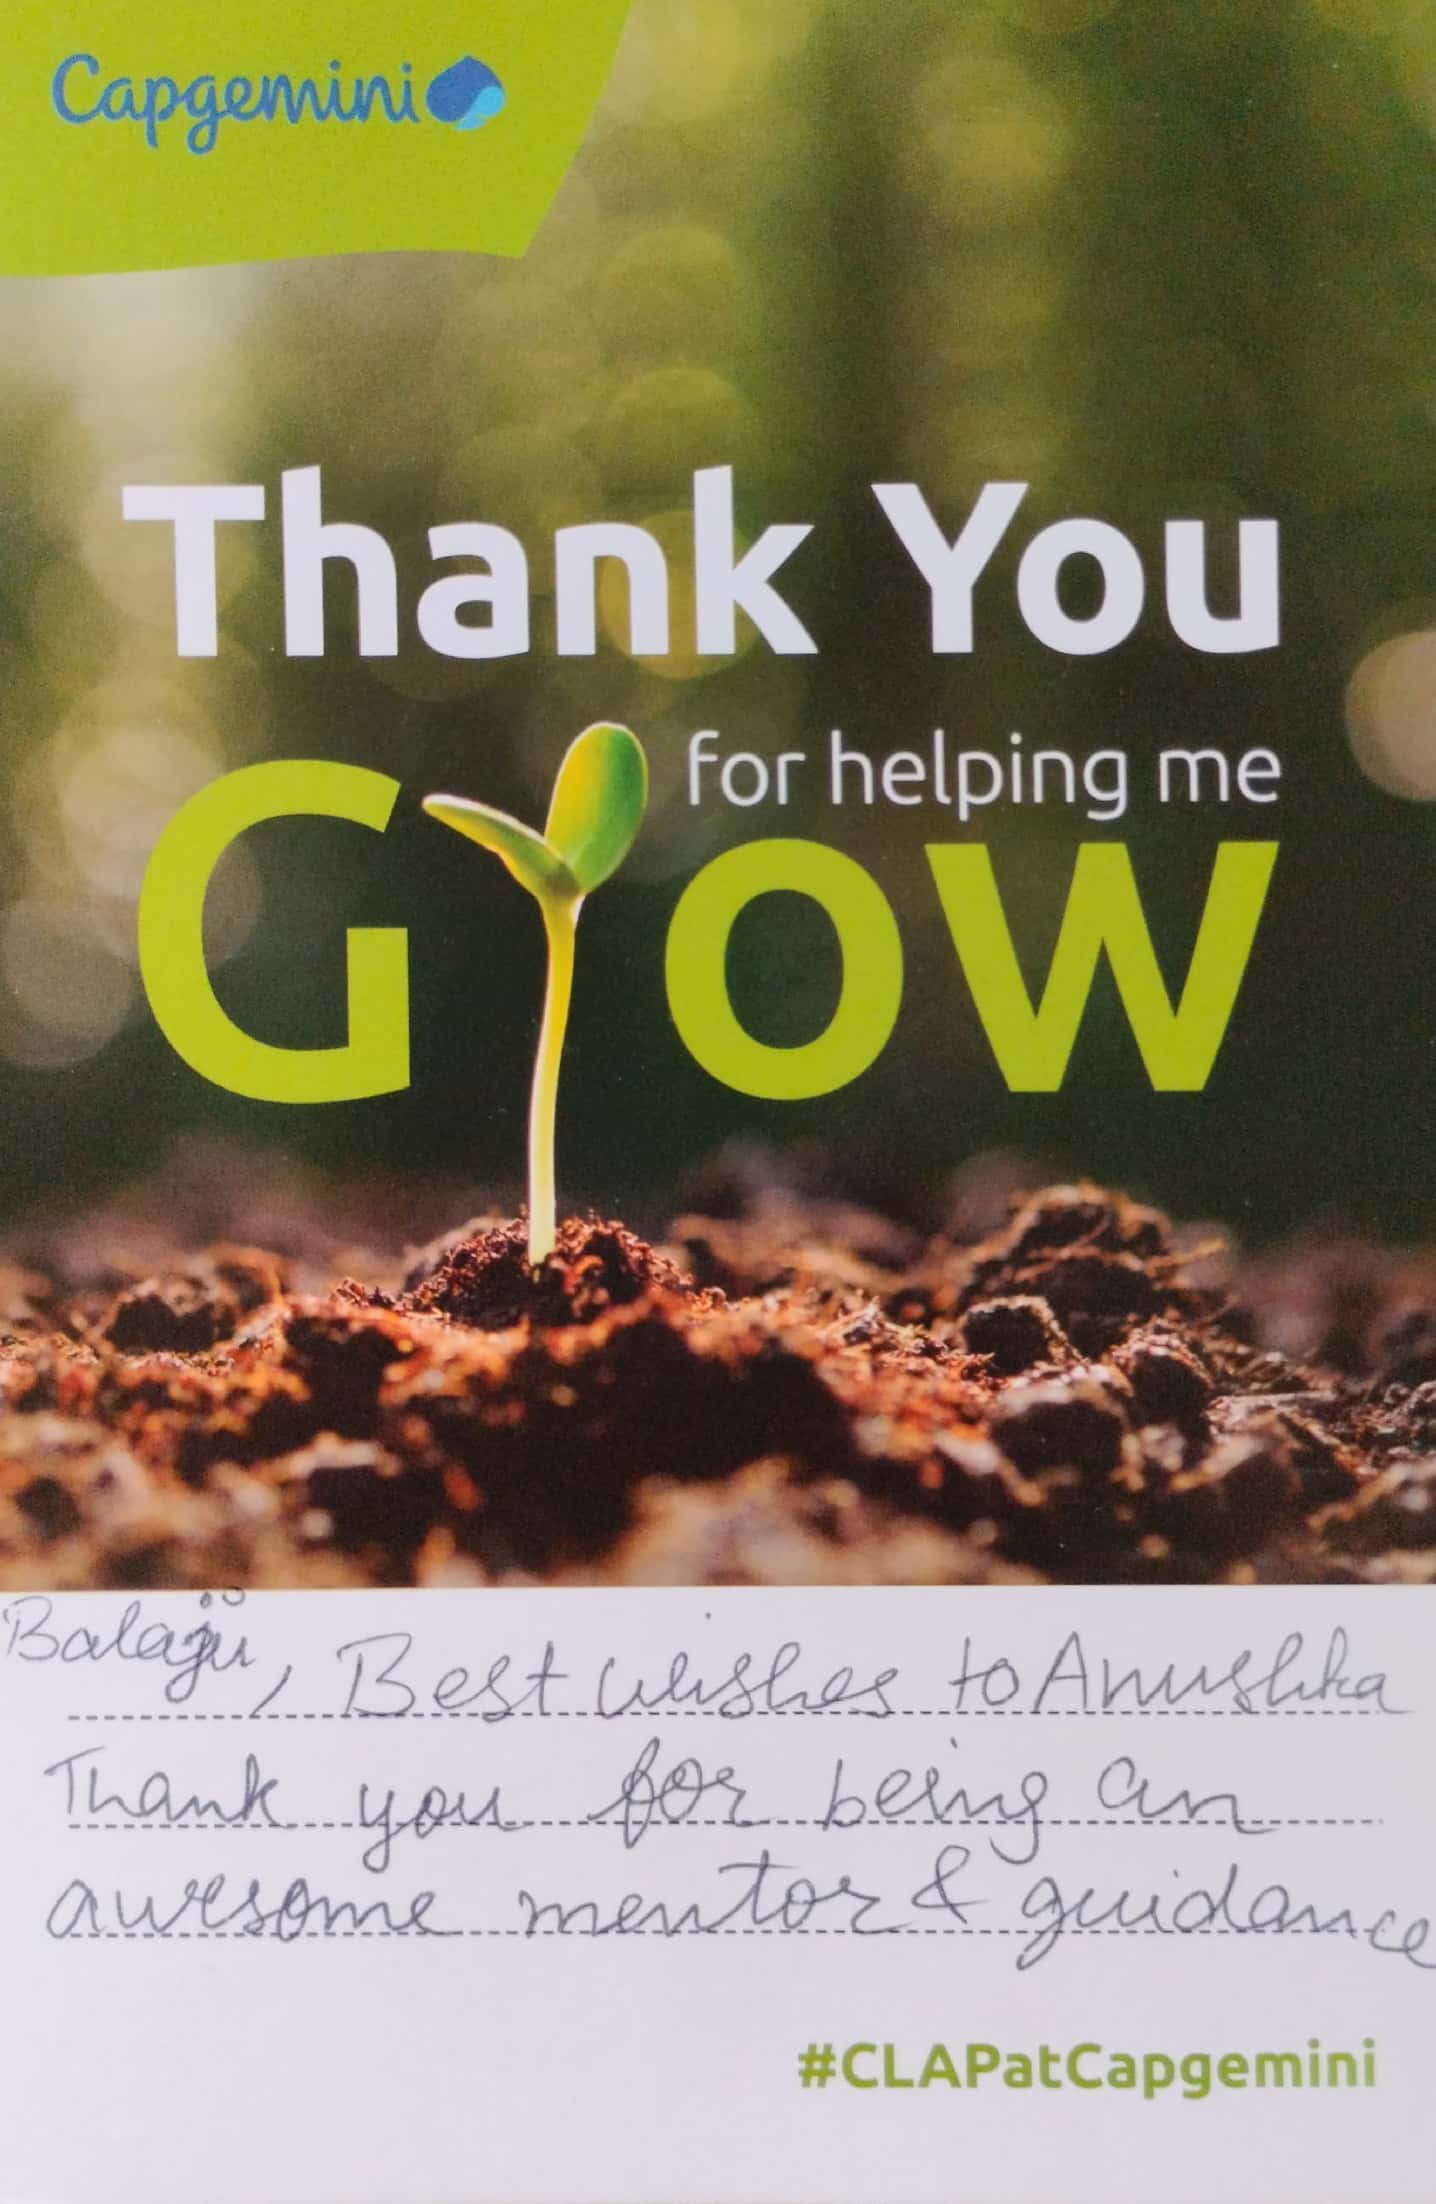 Capgemini
Thank You
for helping me
Grow
Balaji, Best wishes to Anushka
Thank you for being an
awesome mentor & guidance
#CLAPatCapgemini